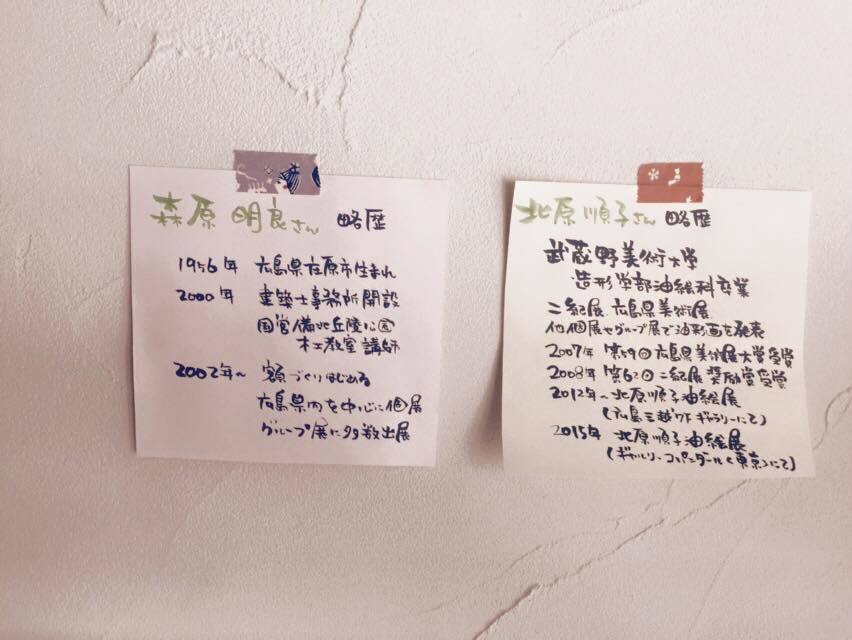 森原 明良さん 略歴
1956年 広島県庄原市生まれ
2000年 建築士事務所開設
国営備北丘陵公園
木工教室講師
2002年〜 額づくりはじめる
広島県内を中心に個展
グループ展に多数出展
北原順子さん 略歴
武蔵野美術大学
造形学部油絵科卒業
二紀展、広島県美術展
他個展やグループ展で油彩画を発表
2007年 第59回広島県美術展大賞受賞
2008年 第62回二紀展 奨励賞受賞
2012年〜 北原順子油絵展
(広島三越7Fギャラリーにて)
2015年 北原順子油絵展
(ギャルリーコパンダール<東京>にて)